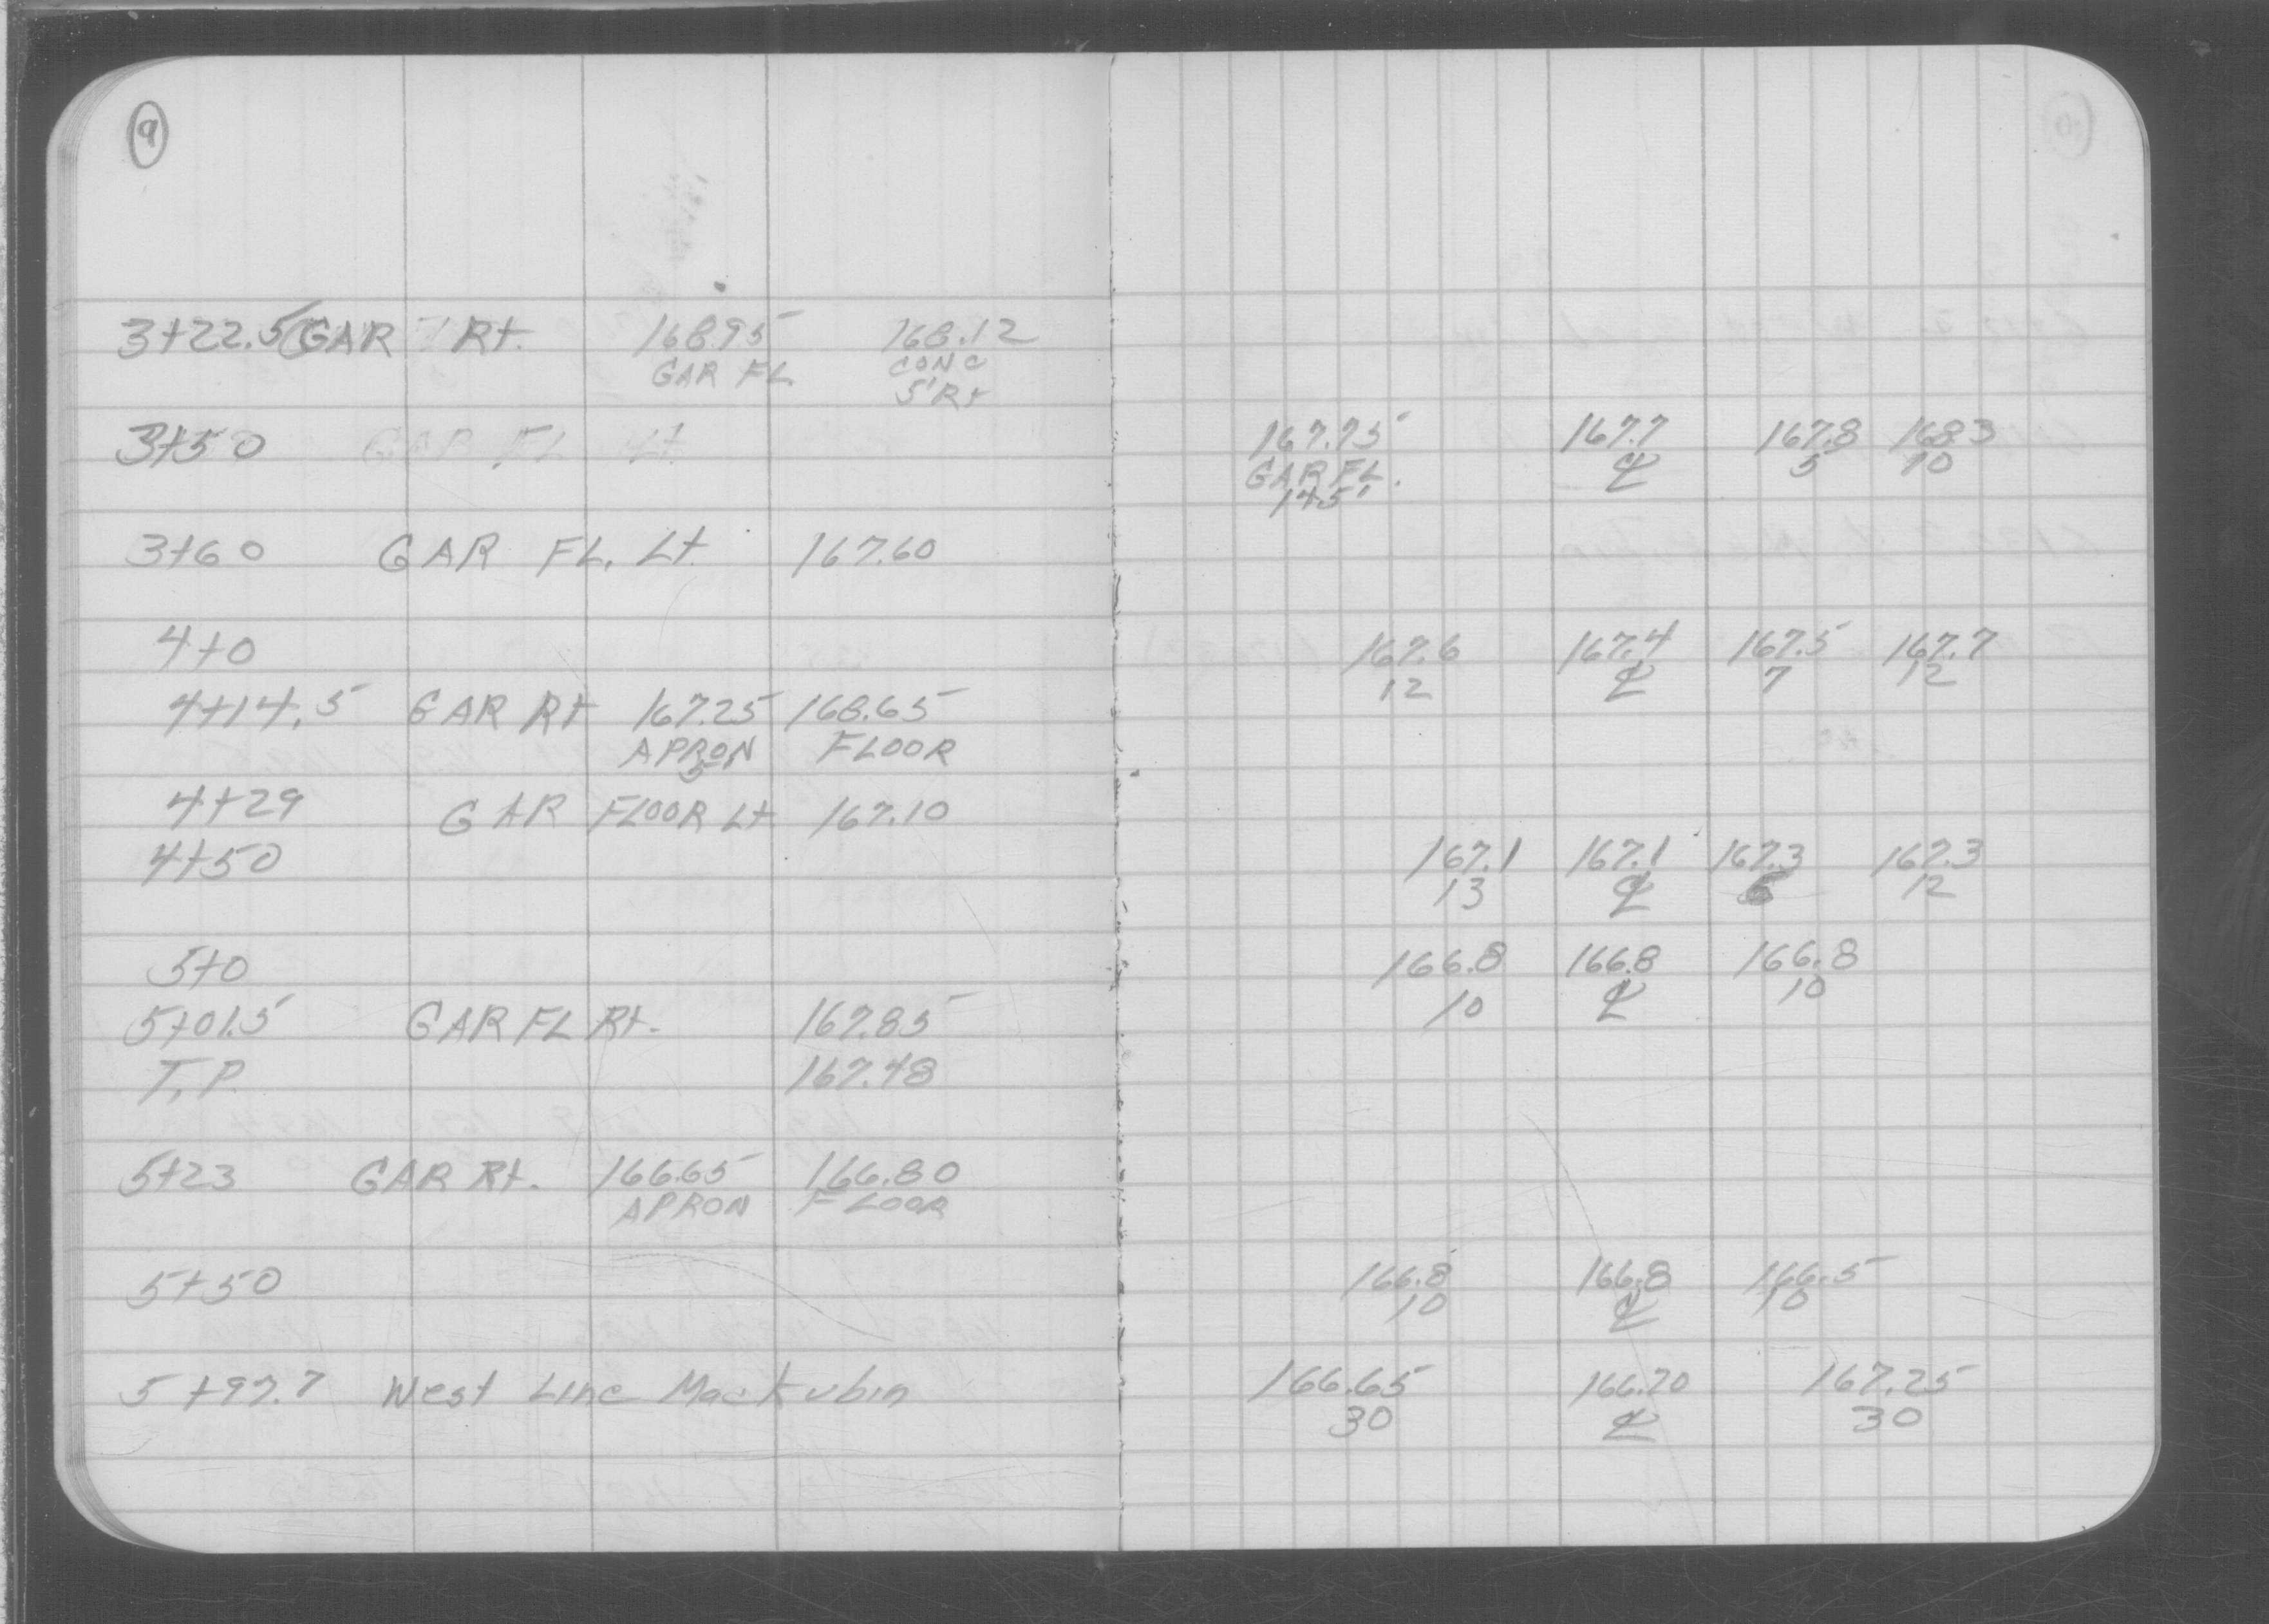 9
3+22.5 GAR Rt. 168.95 168.12
GAR FL CONC
5' Rt
3+50 GAR FL Lt 167.75 167.7 167.8 168.3
GAR FL. ℄ 5 10
3+60 GAR FL. Lt 167.60
4+0 167.6 167.4 167.5 167.7
12 ℄ 7 12
4+14.5 GAR Rt 167.25 168.65
APRON FLOOR
5
4+29 GAR FLOOR Lt 167.10
4+50 167.1 167.1 167.3 167.3
13 ℄ 12
5+0 166.8 166.8 166.8
10 ℄ 10
5+01.5 GAR FL Rt. 167.85
T.P. 167.48
5+23 GAR Rt. 166.65 166.80
APRON FLOOR
5+50 166.8 166.8 166.5
10 ℄ 10
5+97.7 West Line Mackubin 166.65 166.70 167.25
30 ℄ 30